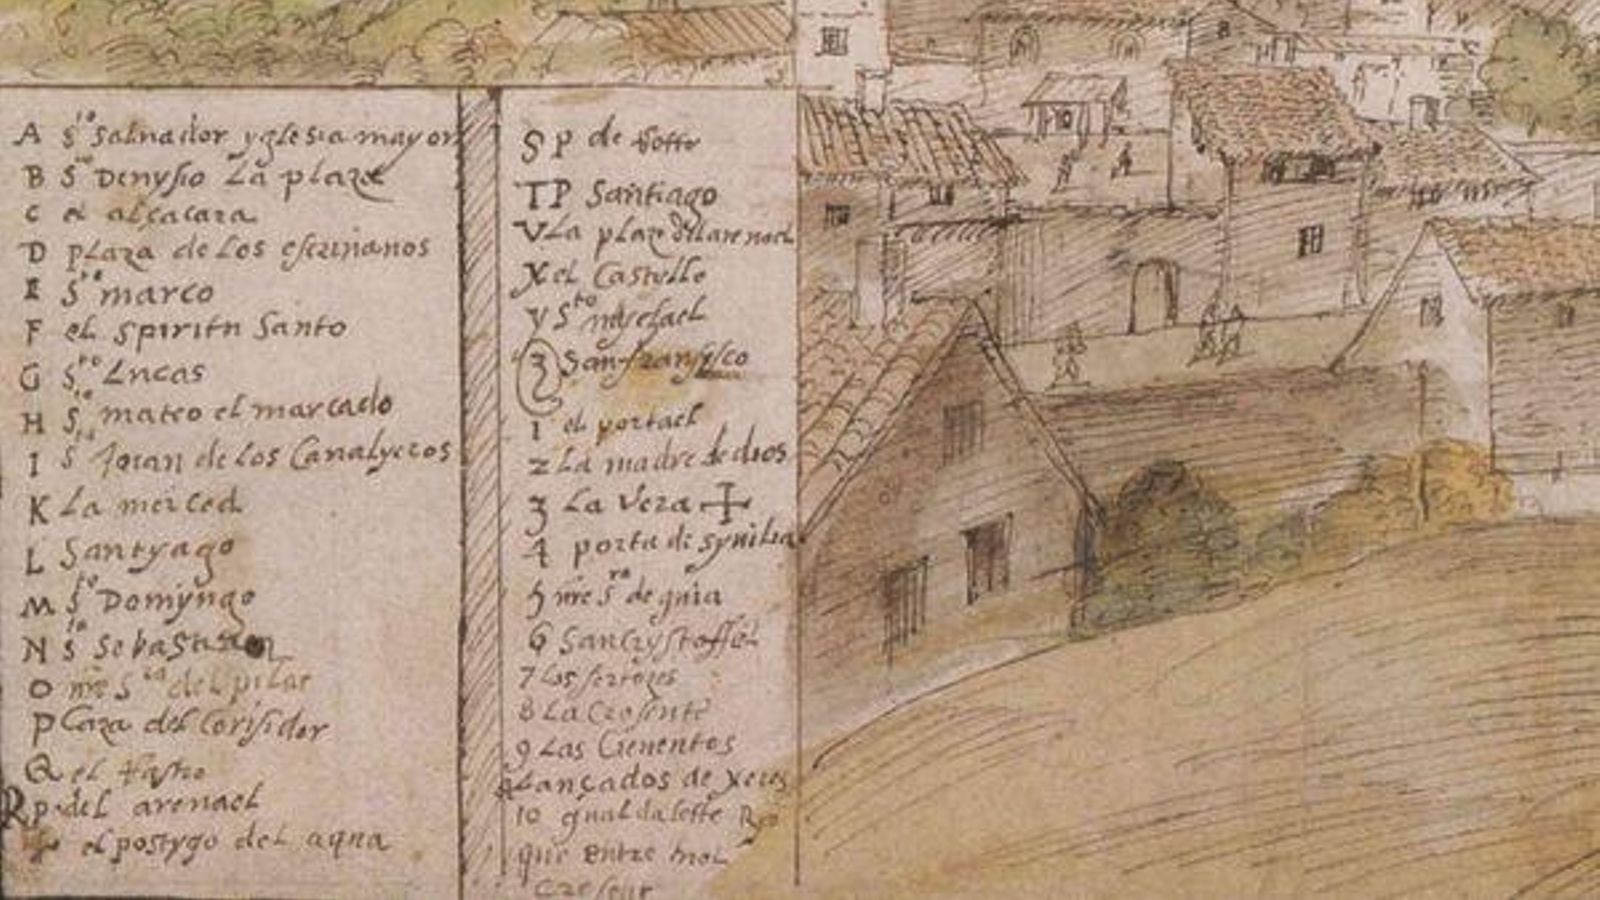 A Sto Saluador ygLesia mayor
B Sto Denysio La plaza
C el alçacara
D plaza de Los escriuanos
E Sto marco
F el spiritu Santo
G Sto Lucas
H Sto mateo el marcado
I S Joan de Los Caualyeros
K La merced
L Santyago
M Sto Domyngo
N Sto Sebastian
O nra Sra del pilar
P Laza del Corisidor
Q el
R p. del arenael
el postygo del aqua
S P de
T P Santiago
V La plaza del arenael
X el Castillo
y Sto mygel
Z San fransysco
1 el portael
2 La madre de dios
3 La Vera +
4 porta de syuilia
5 nra Sra de guia
6 San Crystoffel
7
8 La
9 Las
Lançados de Xeres
10 gualdalette Ryo
que entre